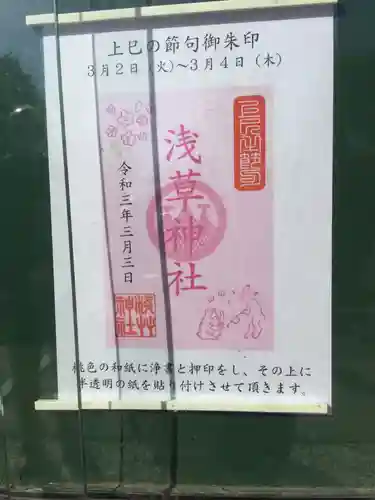 上巳の節句御朱印
3月2日（火）～3月4日（木）
浅草神社
令和三年三月三日
桃色の和紙に浄書と押印をし、その上に
半透明の紙を貼り付けさせて頂きます。